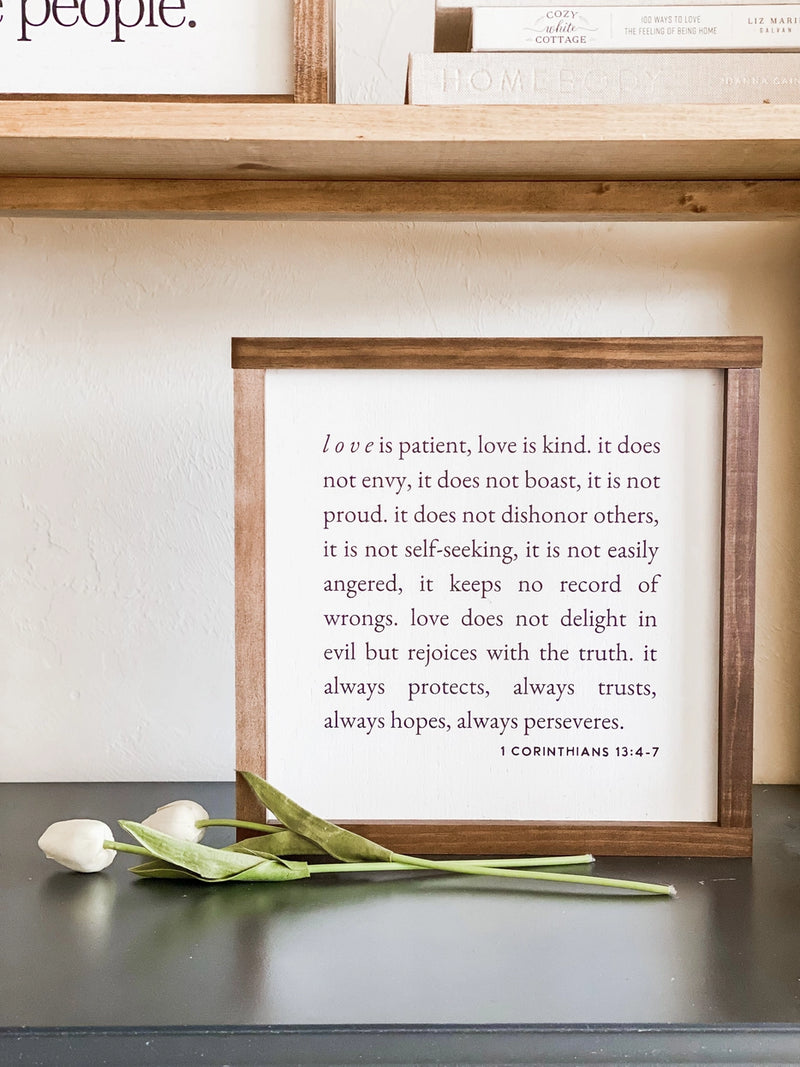 people.
COZY
white
COTTAGE
100 WAYS TO LOVE
THE FEELING OF BEING HOME
LIZ MARIE
GALVAN
HOMEBODY
JOANNA GAIN
love is patient, love is kind. it does
not envy, it does not boast, it is not
proud. it does not dishonor others,
it is not self-seeking, it is not easily
angered, it keeps no record of
wrongs. love does not delight in
evil but rejoices with the truth. it
always protects, always trusts,
always hopes, always perseveres.
1 CORINTHIANS 13:4-7